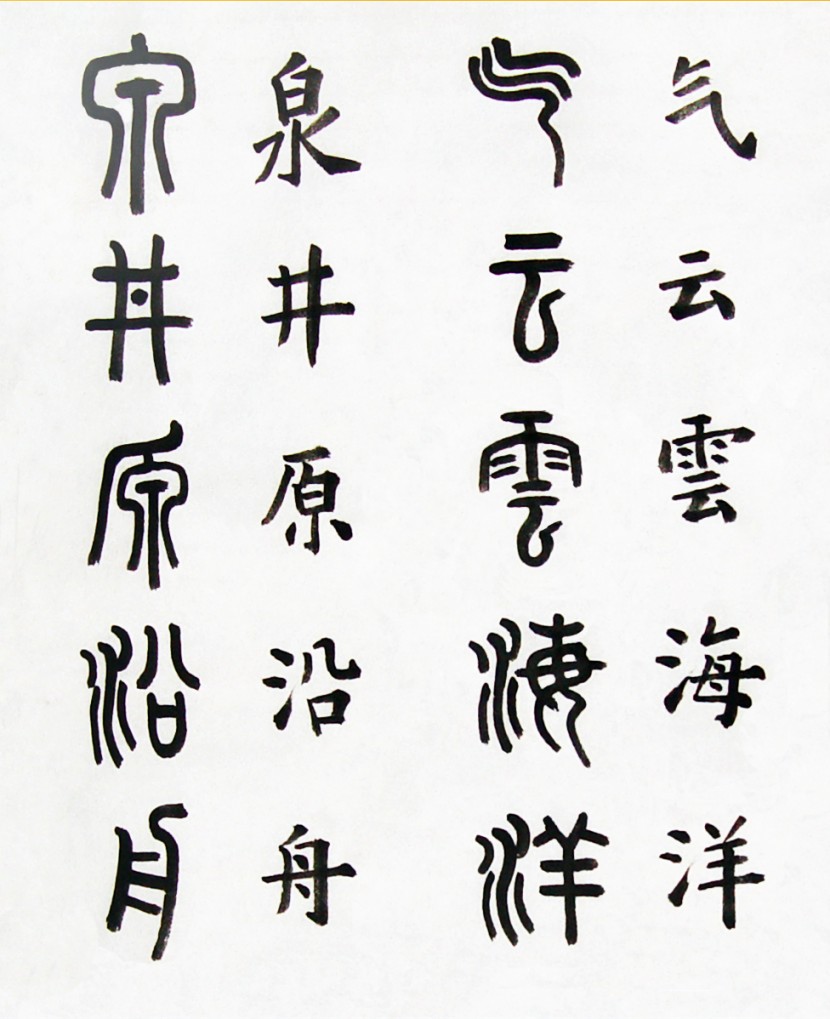 气云雲海洋
气云雲海洋
泉井原沿舟
泉井原沿舟